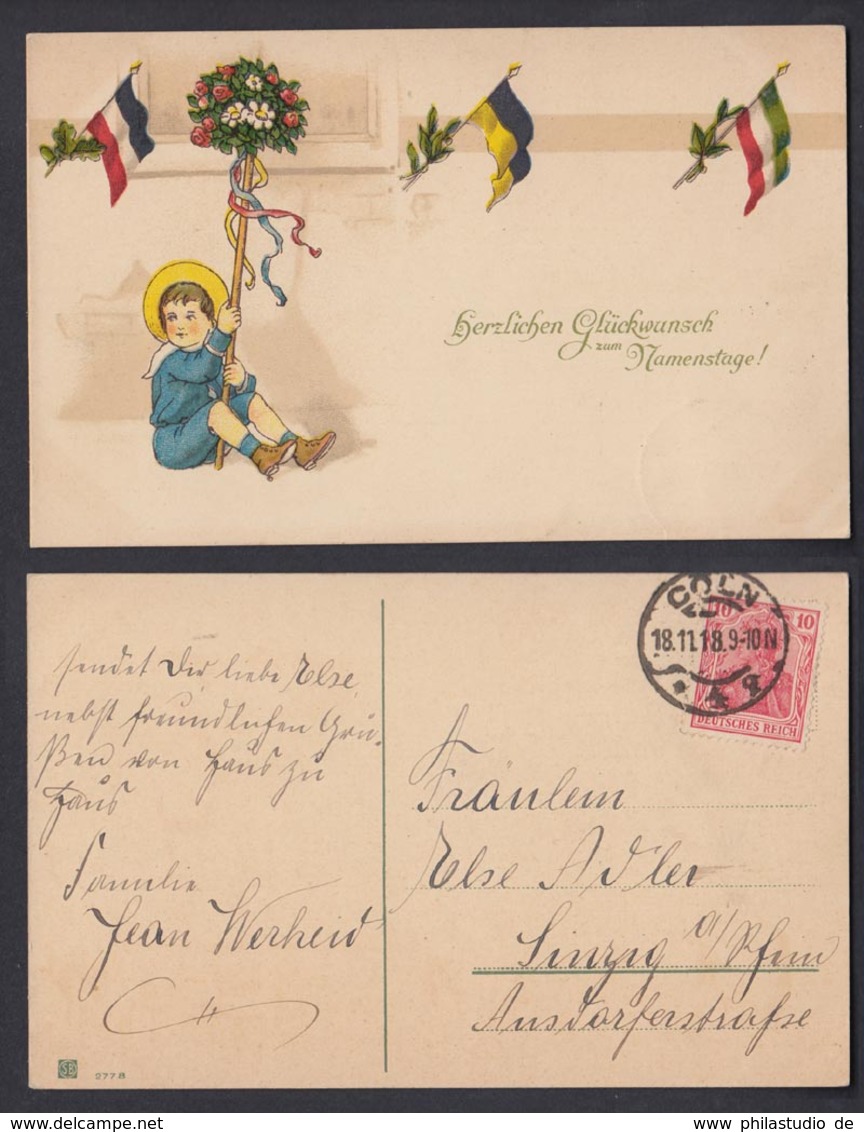 Herzlichen Glückwunsch
zum
Namenstage!
CÖLN
18.11.18.9-10N
10 10
DEUTSCHES REICH
sendet Dir liebe Else,
nebst freundlichen Grü-
ßen von Haus zu
Haus
Familie
Jean Werheid
Fräulein
Else Adler
Sinzig a/Rhein
Ausdorferstraße
277 8
www.philastudio.de